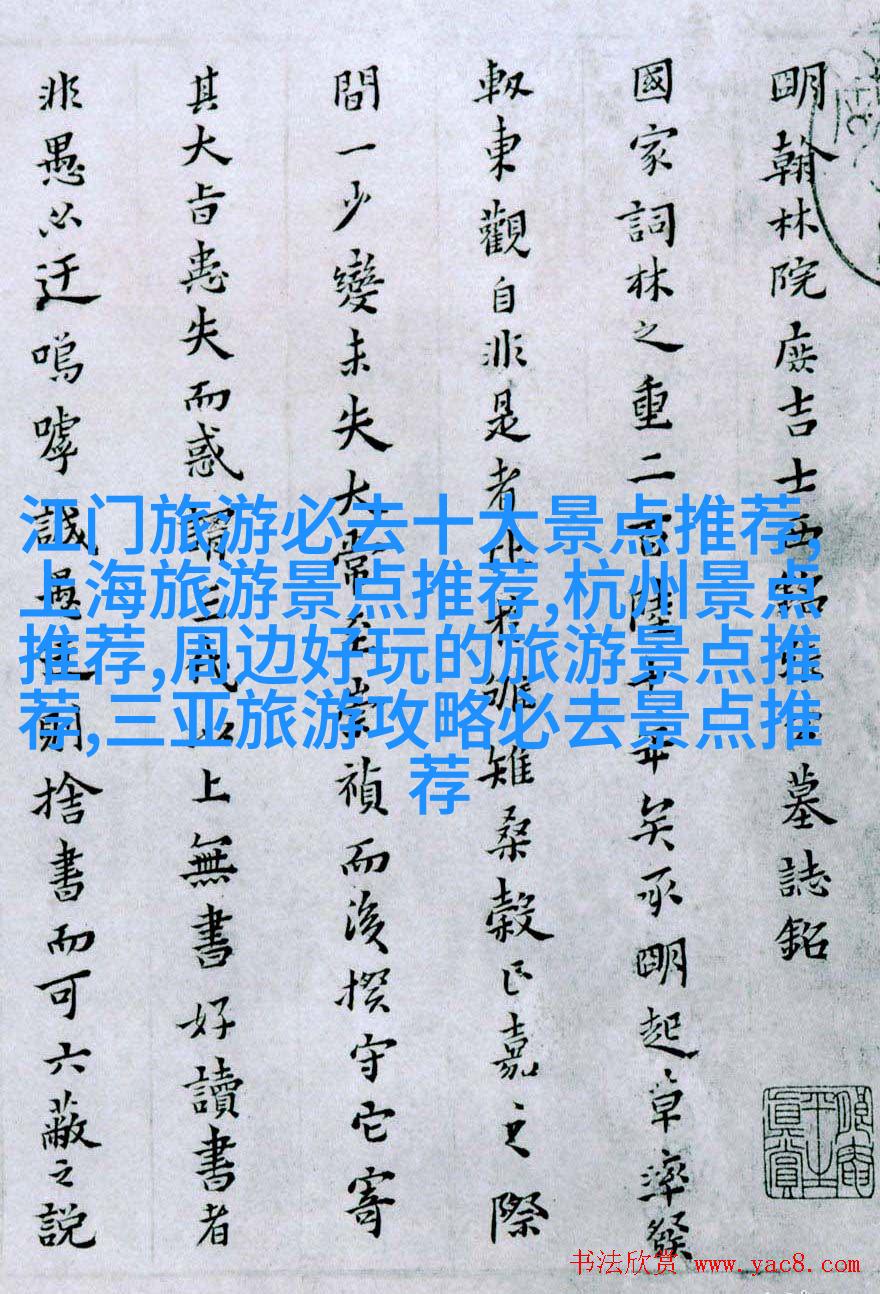 明翰林院庶吉士西銘張公墓誌銘
國家詞林之重二百陸十年矣承明起草率發
軔東觀自非是者比於螟雉桑穀正嘉之際
間一少變未失大常至崇禎而後揆守它寄
其大旨患失而惑謂三代以上無書好讀書者
非愚必迂嗚嘑誠愚迂則捨書而可六蔽之説
江门旅游必去十大景点推荐,
上海旅游景点推荐,杭州景点
推荐,周边好玩的旅游景点推
荐,三亚旅游攻略必去景点推
荐
书法欣赏 www.yac8.com